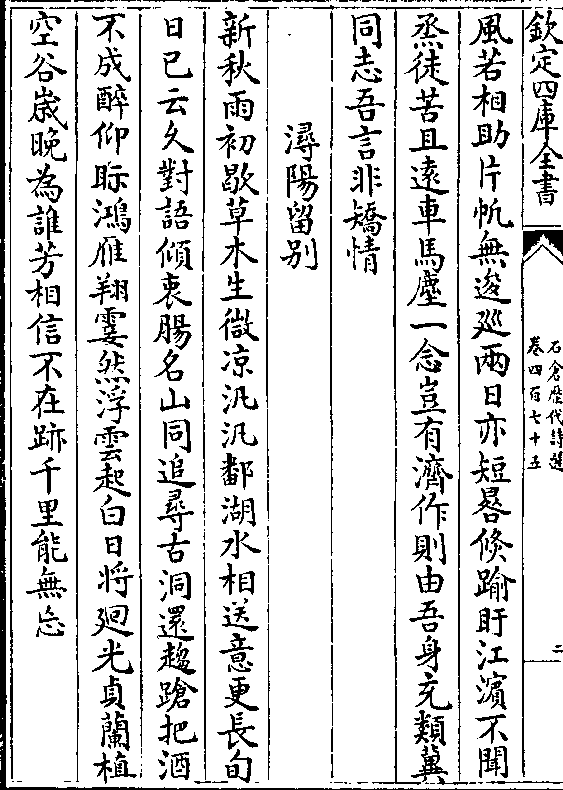 欽定四庫全書
石倉歴代詩選
卷四百七十五
二
風若相助片帆無逡廵兩日亦短晷倐踰盱江濵不聞
烝徒苦且遠車馬塵一念豈有濟作則由吾身充類冀
同志吾言非矯情
潯陽留别
新秋雨初歇草木生微凉汎汎鄱湖水相送意更長旬
日已云久對語傾衷腸名山同追尋古洞還趨蹌把酒
不成醉仰眎鴻雁翔霎然浮雲起白日將廻光貞蘭植
空谷嵗晚為誰芳相信不在跡千里能無忘